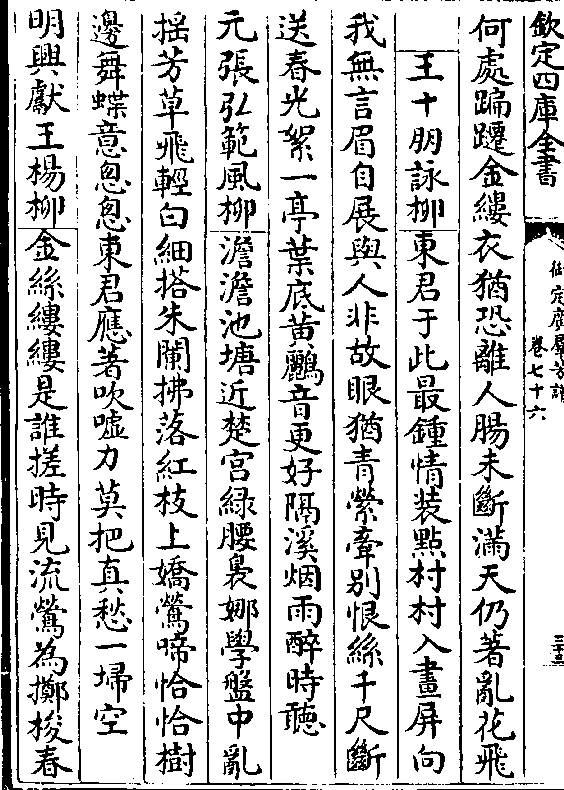 欽定四庫全書
御定廣羣芳譜
卷七十六
三十三
何處蹁躚金縷衣猶恐離人腸未斷滿天仍著亂花飛
王十朋詠柳東君于此最鍾情装點村村入畫屏向
我無言眉自展與人非故眼猶青縈牽別恨絲千尺斷
送春光絮一亭葉底黃鸝音更好隔溪烟雨醉時聽
元張弘範風柳澹澹池塘近楚宫緑腰裊娜學盤中亂
揺芳草飛輕白細搭朱闌拂落紅枝上嬌鶯啼恰恰樹
邊舞蝶意怱怱東君應著吹噓力莫把真愁一埽空
明興獻王楊柳金絲縷縷是誰搓時見流鶯為擲梭春